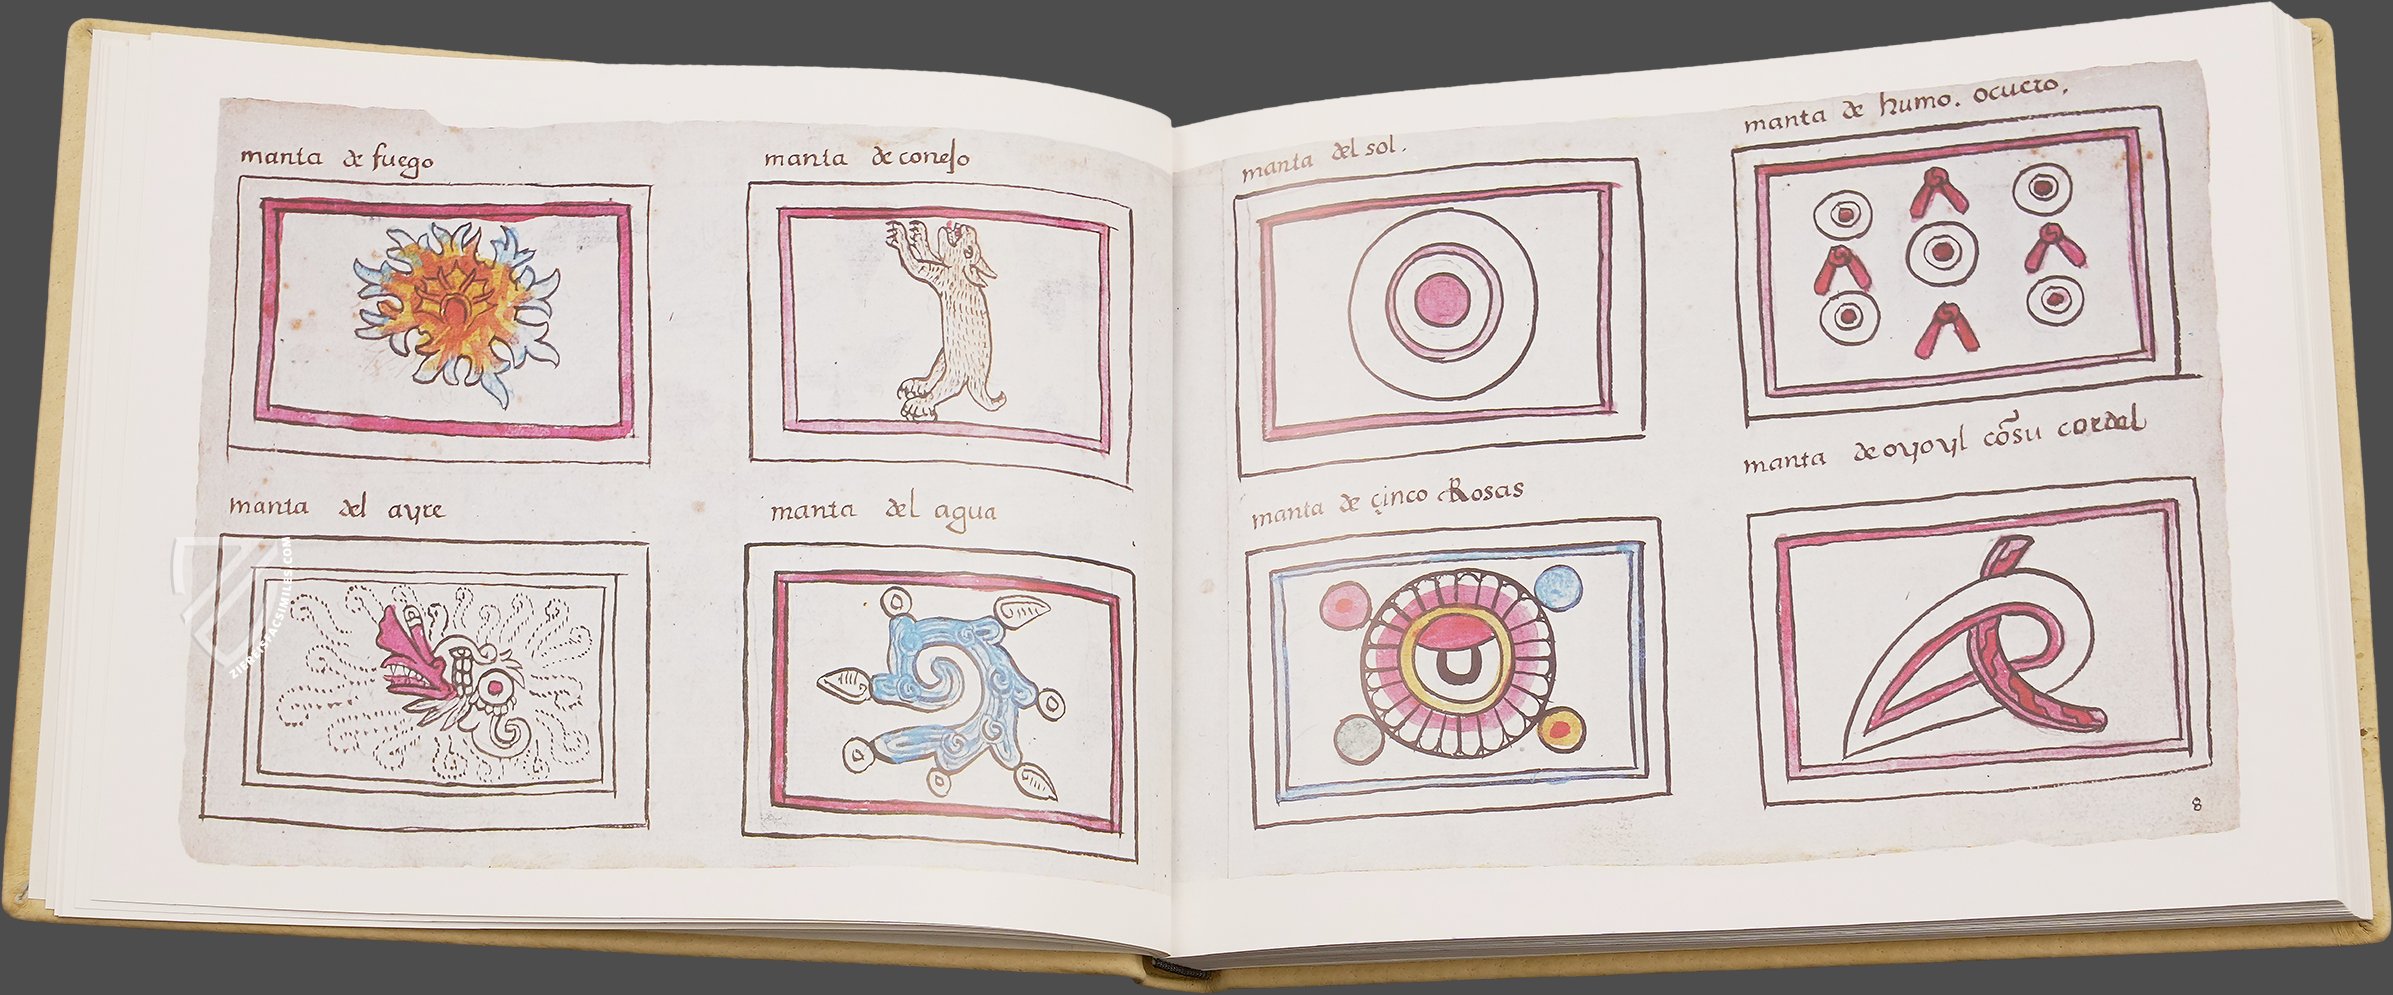 manta de fuego
manta de conejo
manta del ayre
manta del agua
manta del sol.
manta de humo. ocucro.
manta de çinco Rosas
manta de oyoyl cõsu cordel
8
ZIEREISFACSIMILES.COM